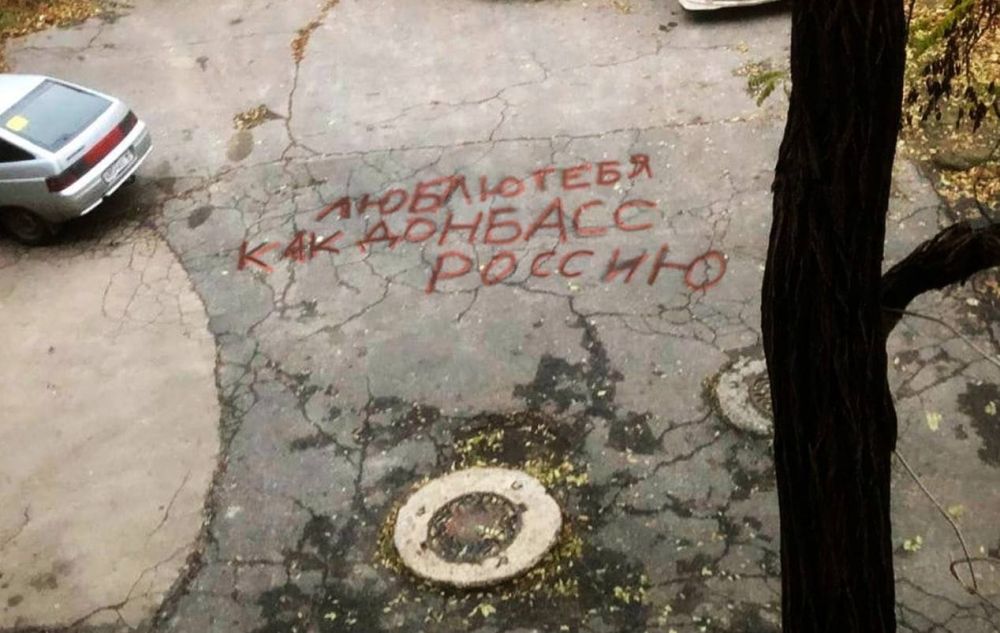 ЛЮБЛЮ ТЕБЯ
КАК ДОНБАСС
РОССИЮ